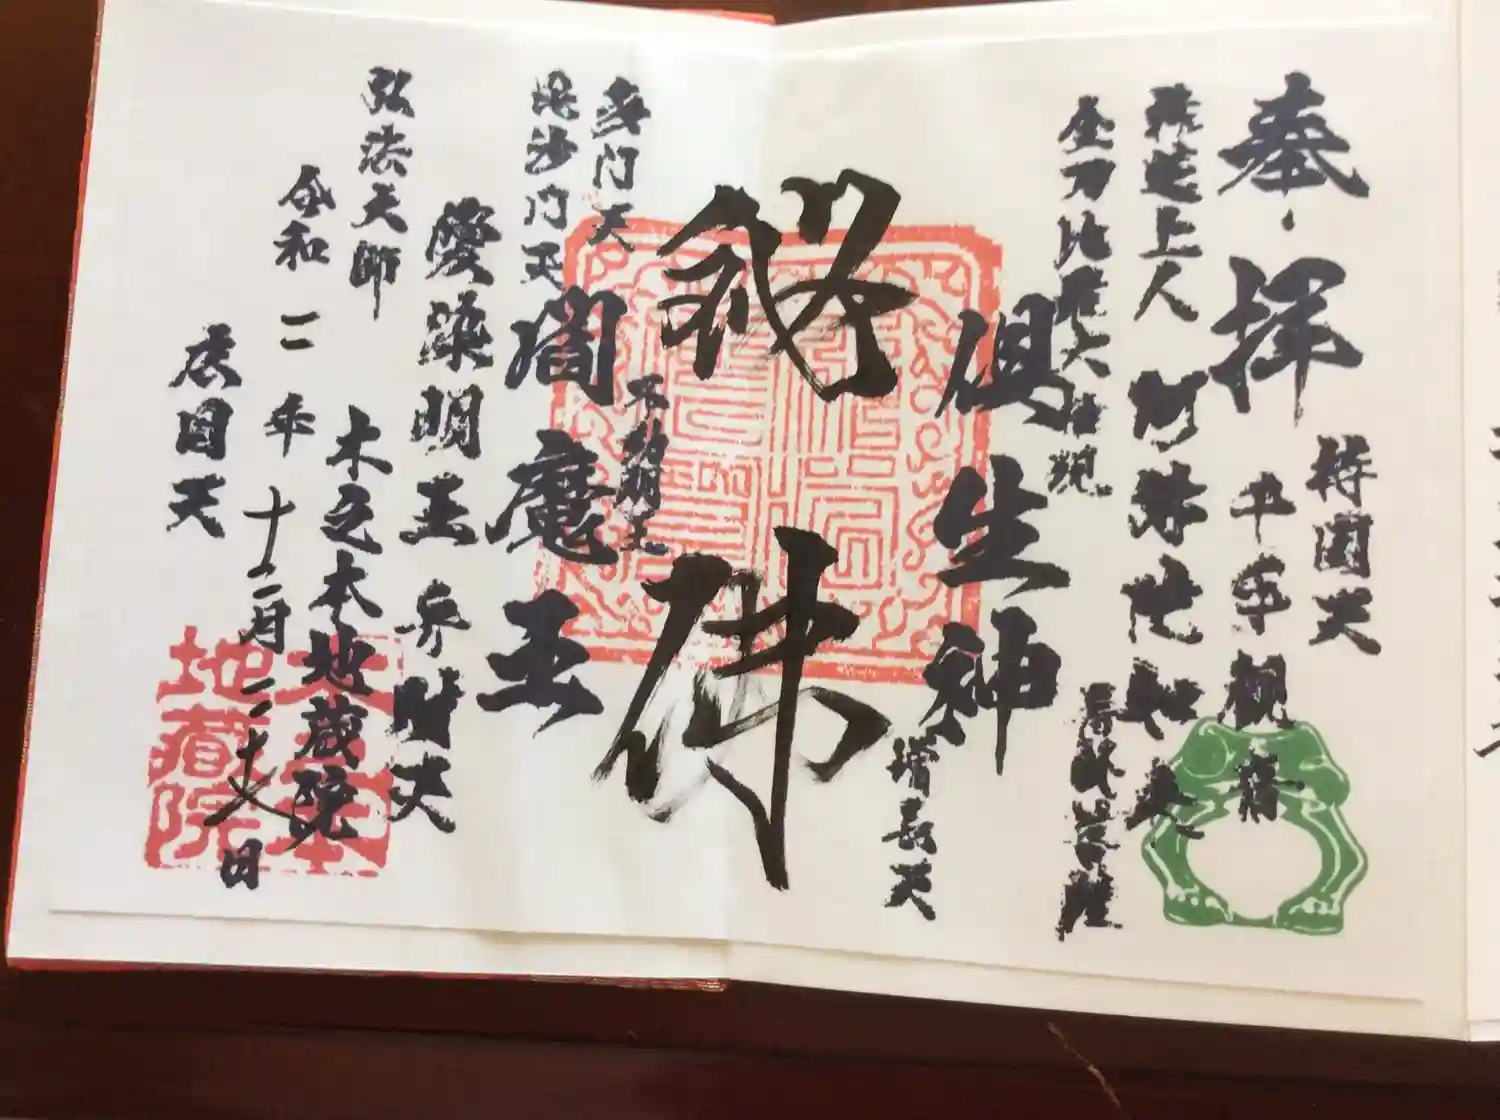 奉拝
持国天
千手観音
上人
阿弥陀如来
金刀比羅大権現
倶生神
増長天
秘佛
多門天
毘沙門天
不動明王
閻魔王
愛染明王
弁財天
弘法大師
木之本地蔵院
令和二年十二月二十八日
広目天
木之本
地蔵院